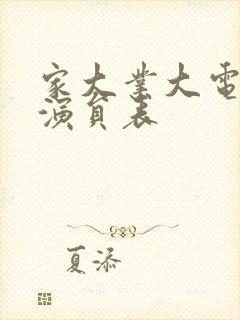 家大業大電
演員表
夏添